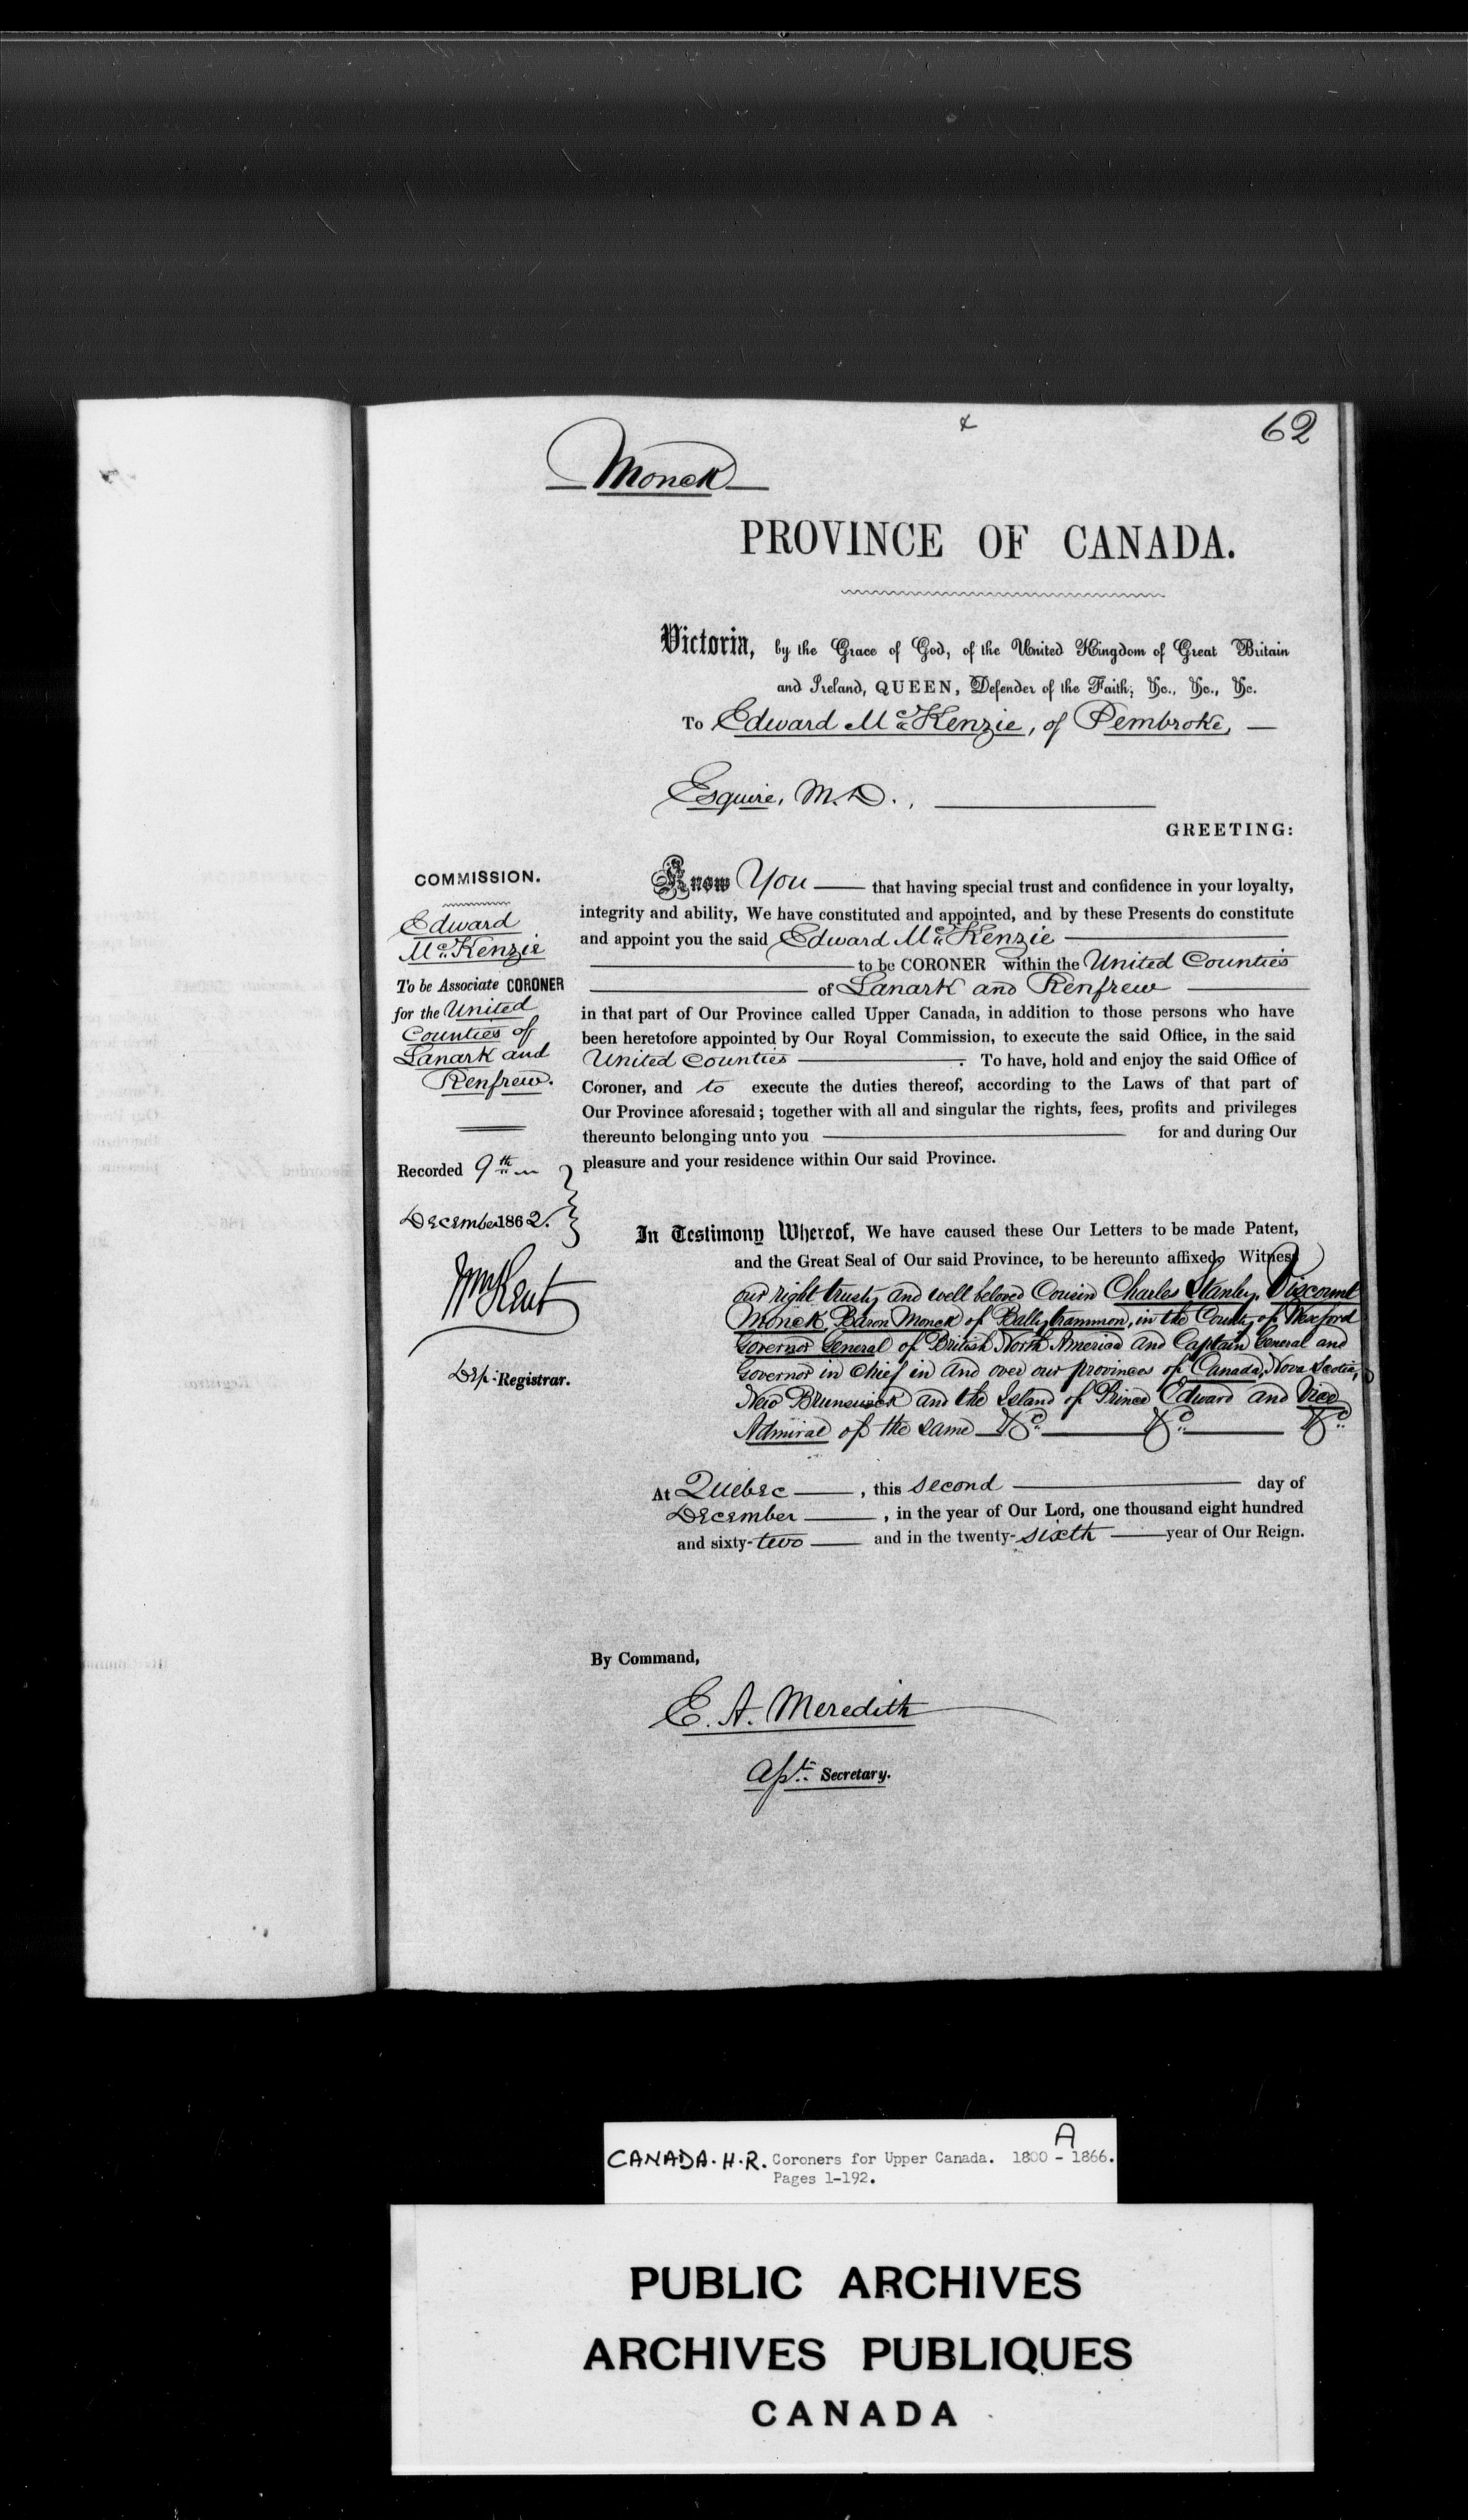 62
Monck
PROVINCE OF CANADA.
Victoria, by the Grace of God, of the United Kingdom of Great Britain
and Ireland, QUEEN, Defender of the Faith; &c., &c., &c.
To Edward McKenzie, of Pembroke,
Esquire, M.D.,
GREETING:
COMMISSION.
Edward
McKenzie
To be Associate CORONER
for the United
Counties of
Lanark and
Renfrew.
Recorded 9th
December 1862.
Wm Kent
Dep: Registrar.
Know You that having special trust and confidence in your loyalty,
integrity and ability, We have constituted and appointed, and by these Presents do constitute
and appoint you the said Edward McKenzie
to be CORONER within the United Counties
of Lanark and Renfrew
in that part of Our Province called Upper Canada, in addition to those persons who have
been heretofore appointed by Our Royal Commission, to execute the said Office, in the said
United Counties. To have, hold and enjoy the said Office of
Coroner, and to execute the duties thereof, according to the Laws of that part of
Our Province aforesaid; together with all and singular the rights, fees, profits and privileges
thereunto belonging unto you for and during Our
pleasure and your residence within Our said Province.
In Testimony Whereof, We have caused these Our Letters to be made Patent,
and the Great Seal of Our said Province, to be hereunto affixed, Witness
our right trusty and well beloved Cousin Charles Stanley, Viscount
Monck, Baron Monck of Ballytrammon, in the County of Wexford
Governor General of British North America and Captain General and
Governor in Chief in and over our provinces of Canada, Nova Scotia,
New Brunswick and the Island of Prince Edward and Vice
Admiral of the same &c &c &c
At Quebec, this second day of
December, in the year of Our Lord, one thousand eight hundred
and sixty-two and in the twenty-sixth year of Our Reign.
By Command,
E. A. Meredith
Asst. Secretary.
A
CANADA. H.R. Coroners for Upper Canada. 1800 - 1866.
Pages 1-192.
PUBLIC ARCHIVES
ARCHIVES PUBLIQUES
CANADA